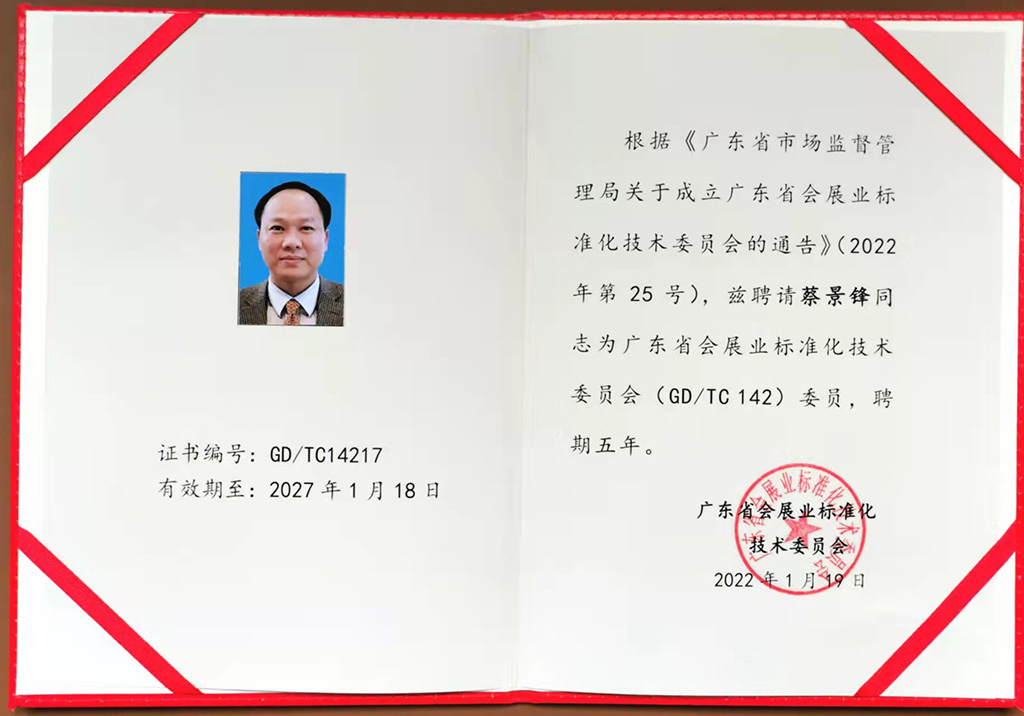 证书编号：GD/TC14217
有效期至：2027年1月18日
根据《广东省市场监督管
理局关于成立广东省会展业标
准化技术委员会的通告》（2022
年第 25 号），兹聘请蔡景锋同
志为广东省会展业标准化技术
委员会（GD/TC 142）委员，聘
期五年。
广东省会展业标准化
技术委员会
2022年1月19日
广东省会展业标准化技术委员会